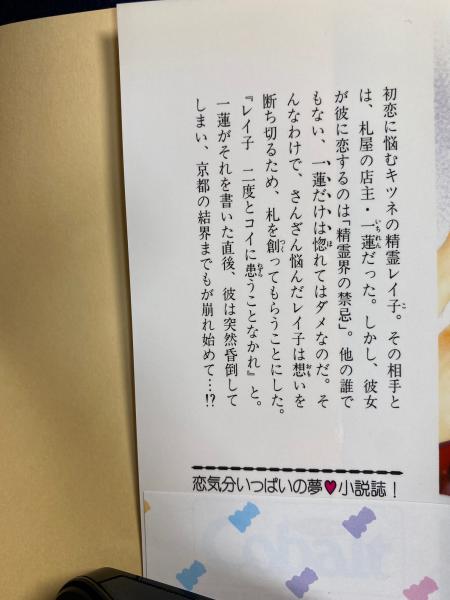 初恋に悩むキツネの精霊レイ子。その相手と
は、札屋の店主・一蓮だった。しかし、彼女
が彼に恋するのは「精霊界の禁忌」。他の誰で
もない、一蓮だけは惚れてはダメなのだ。そ
んなわけで、さんざん悩んだレイ子は想いを
断ち切るため、札を創ってもらうことにした。
『レイ子　二度とコイに患うことなかれ』と。
一蓮がそれを書いた直後、彼は突然昏倒して
しまい、京都の結界までもが崩れ始めて…!?
恋気分いっぱいの夢♥小説誌!
Cobalt